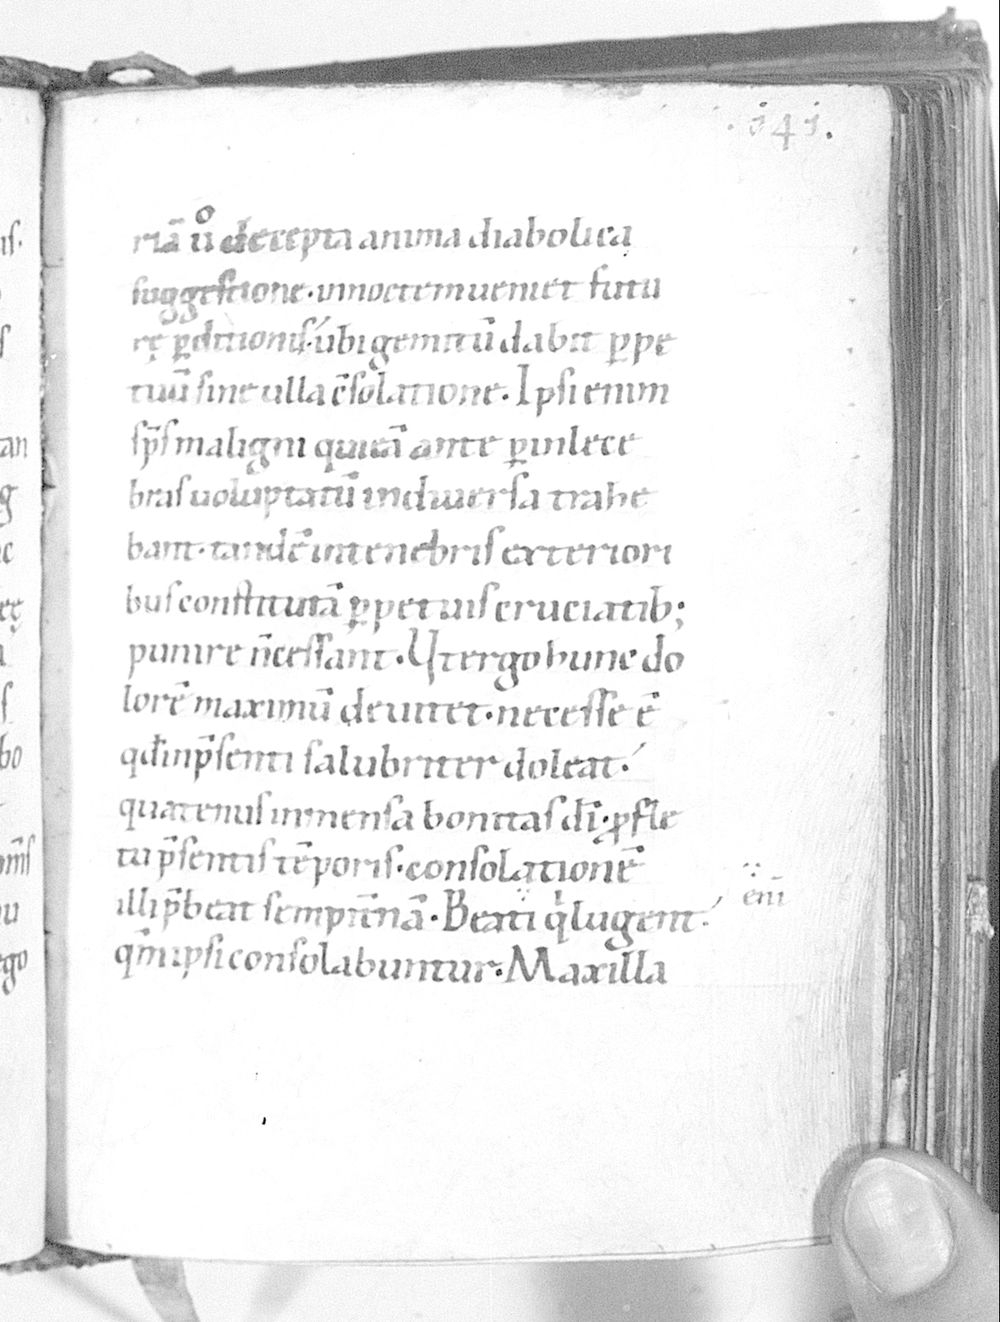 ·141·
riā ů decepta anima diabolica
suggestione· in noctem ueniet futu
rę p̱ditionis· ubi gemitū dabit p̱pe
tuū sine ulla c̄solatione. Ipsi enim
sp̄s maligni qui eā ante p̱ illece
bras uoluptatū in diuersa trahe
bant· tandē in tenebris exteriori
bus constitutā p̱petuis cruciatib;
punire n̄ cessant. Ut ergo hunc do
lorē maximū deuitet· necesse ē
qđ in p̄senti salubriter doleat·
quatenus inmensa bonitas dī· ꝓ fle
tu p̄sentis tēporis· consolationē
illi p̄beat sempit̄nā. Beati qͥ lugent·
enī
qm̄ ipsi consolabuntur. Maxilla